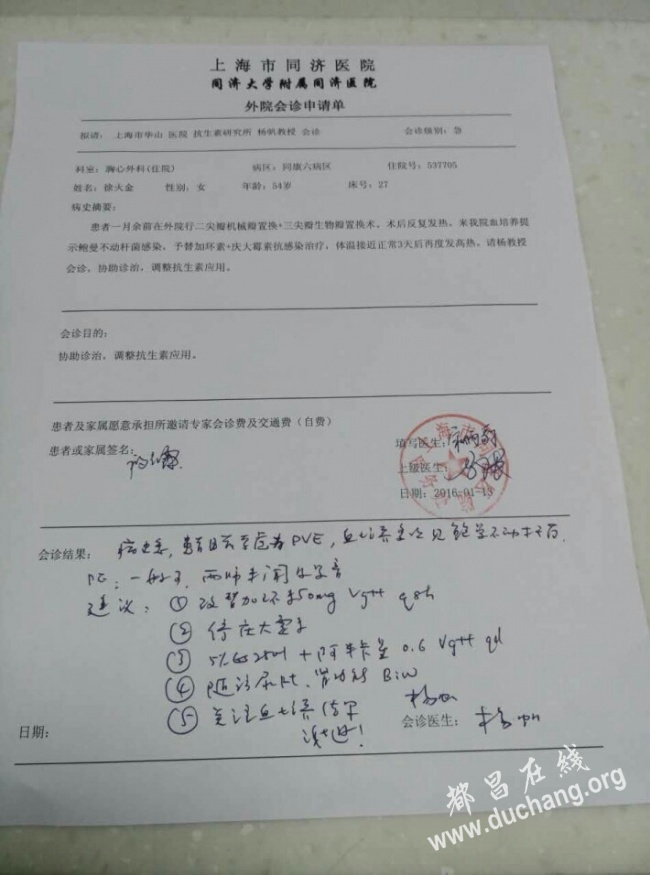 上海市同济医院
同济大学附属同济医院
外院会诊申请单
报请: 上海市华山 医院 抗生素研究所 杨帆教授 会诊 会诊级别: 急
科室: 胸心外科(住院) 病区: 同康六病区 住院号: 537705
姓名: 徐火金 性别: 女 年龄: 54岁 床号: 27
病史摘要:
患者一月余前在外院行二尖瓣机械瓣置换+三尖瓣生物瓣置换术。术后反复发热。来我院血培养提
示鲍曼不动杆菌感染,予替加环素+庆大霉素抗感染治疗,体温接近正常3天后再度发高热。请杨教授
会诊,协助诊治,调整抗生素应用。
会诊目的:
协助诊治,调整抗生素应用。
患者及家属愿意承担所邀请专家会诊费及交通费(自费)
患者或家属签名:
填写医生:
上级医生:
日期: 2016-01-13
会诊结果: 病史悉, 目前考虑为PVE, 血培养多次见鲍曼不动杆菌.
PE: 一般可, 两肺未闻及罗音
建议: ① 改替加环素50mg Vgtt q8h
② 停庆大霉素
③ + 阿米卡星 0.6 Vgtt qd
④ 随访尿Rt、肾功能 Biw
⑤ 关注血培养结果
谢邀!
杨帆
会诊医生: 杨帆
日期:
都昌在线
www.duchang.org